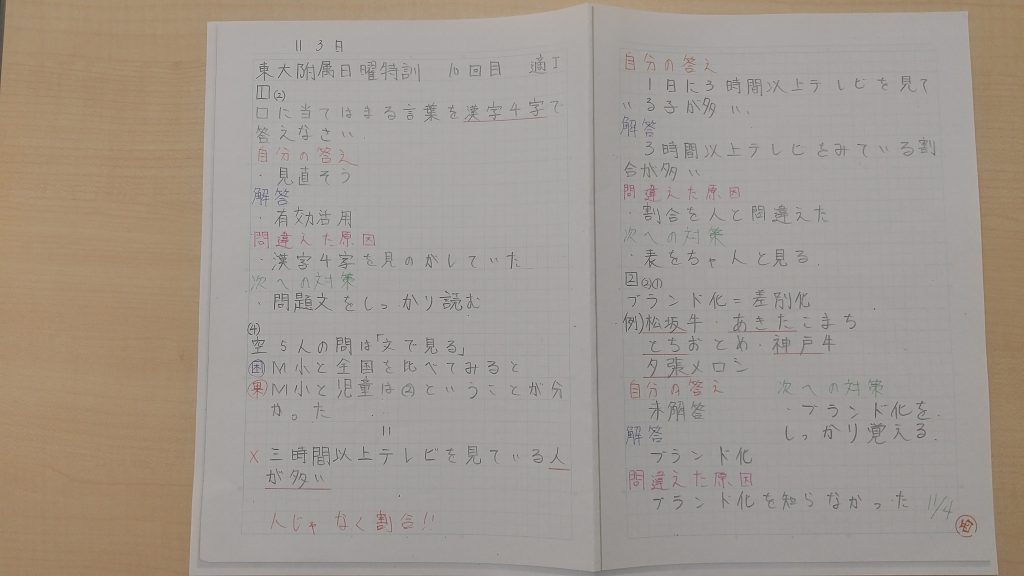 11 3日
東大附属日曜特訓 10回目 適I
1 (2)
口に当てはまる言葉を漢字4字で
答えなさい.
自分の答え
・見直そう
解答
・有効活用
間違えた原因
・漢字4字を見のがしていた
次への対策
・問題文をしっかり読む
(4)
空らんの問は「文で見る」
M小と全国を比べてみると
果 M小と児童は(2)ということが分
か。た
=
× 三時間以上テレビを見ている人
が多い
人じゃなく割合!!
自分の答え
1日に3時間以上テレビを見て
いる子が多い.
解答
3時間以上テレビをみている割
合が多い
間違えた原因
・割合を人と間違えた
次への対策
・表をちゃんと見る.
2 (2)の
ブランド化=差別化
例)松坂牛・あきたこまち
とちおとめ・神戸牛
夕張メロン
自分の答え 次への対策
未解答 ・ブランド化を
解答 しっかり覚える.
ブランド化
間違えた原因
ブランド化を知らなかった 11/4